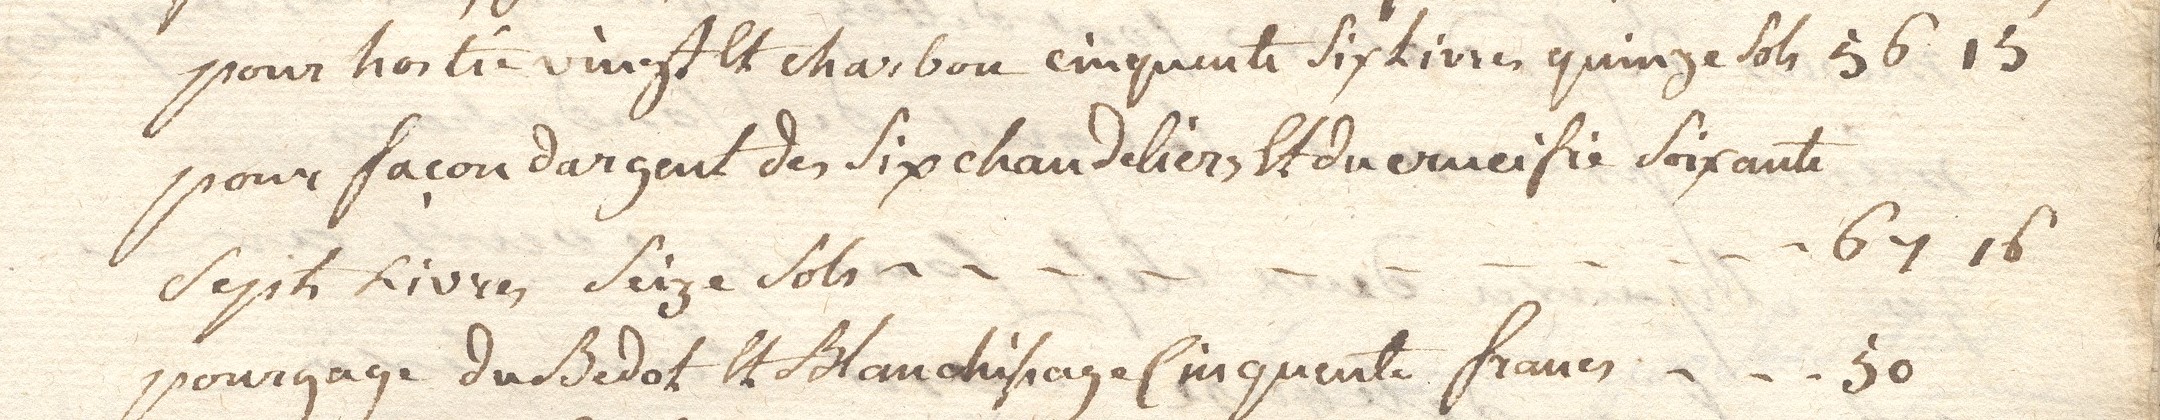 pour hostie vingt et charbon cinquente six Livres quinze sols 56 15
pour façon dargent des six chandeliers et du crucifie soixante
septs Livres seize sols - - - - - - - - - 67 16
pourgage du Bedot et Blanchissage Cinquente francs - - - 50